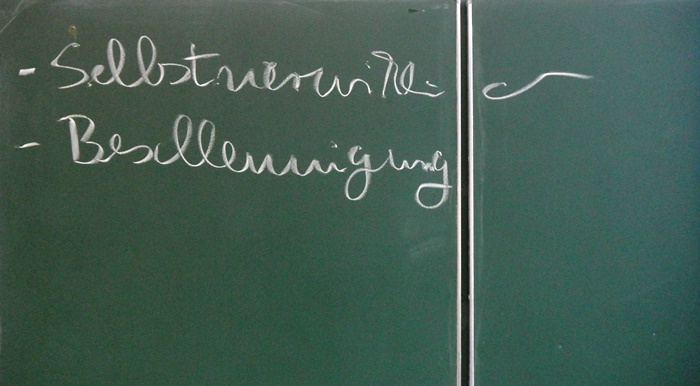 - Selbstverwirkli-
- Beschleunigung